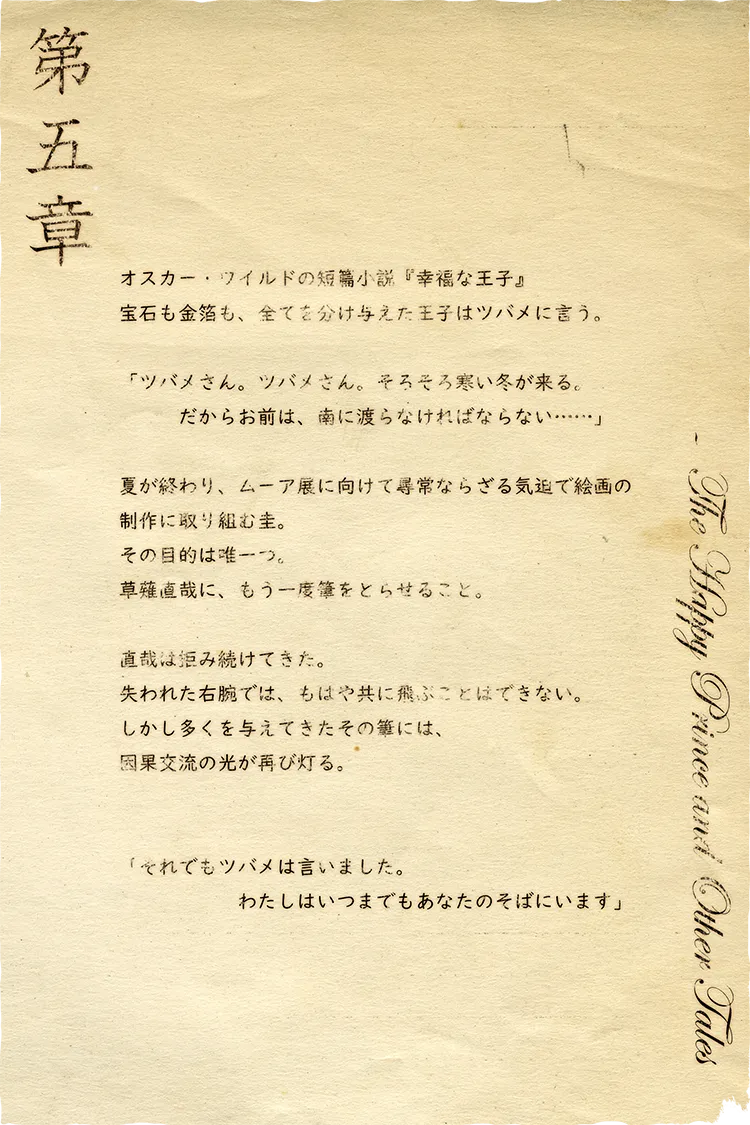 第五章
オスカー・ワイルドの短篇小説『幸福な王子』
宝石も金箔も、全てを分け与えた王子はツバメに言う。
「ツバメさん。ツバメさん。そろそろ寒い冬が来る。
だからお前は、南に渡らなければならない……」
夏が終わり、ムーア展に向けて尋常ならざる気迫で絵画の
制作に取り組む圭。
その目的は唯一つ。
草薙直哉に、もう一度筆をとらせること。
直哉は拒み続けてきた。
失われた右腕では、もはや共に飛ぶことはできない。
しかし多くを与えてきたその筆には、
因果交流の光が再び灯る。
「それでもツバメは言いました。
わたしはいつまでもあなたのそばにいます」
- The Happy Prince and Other Tales